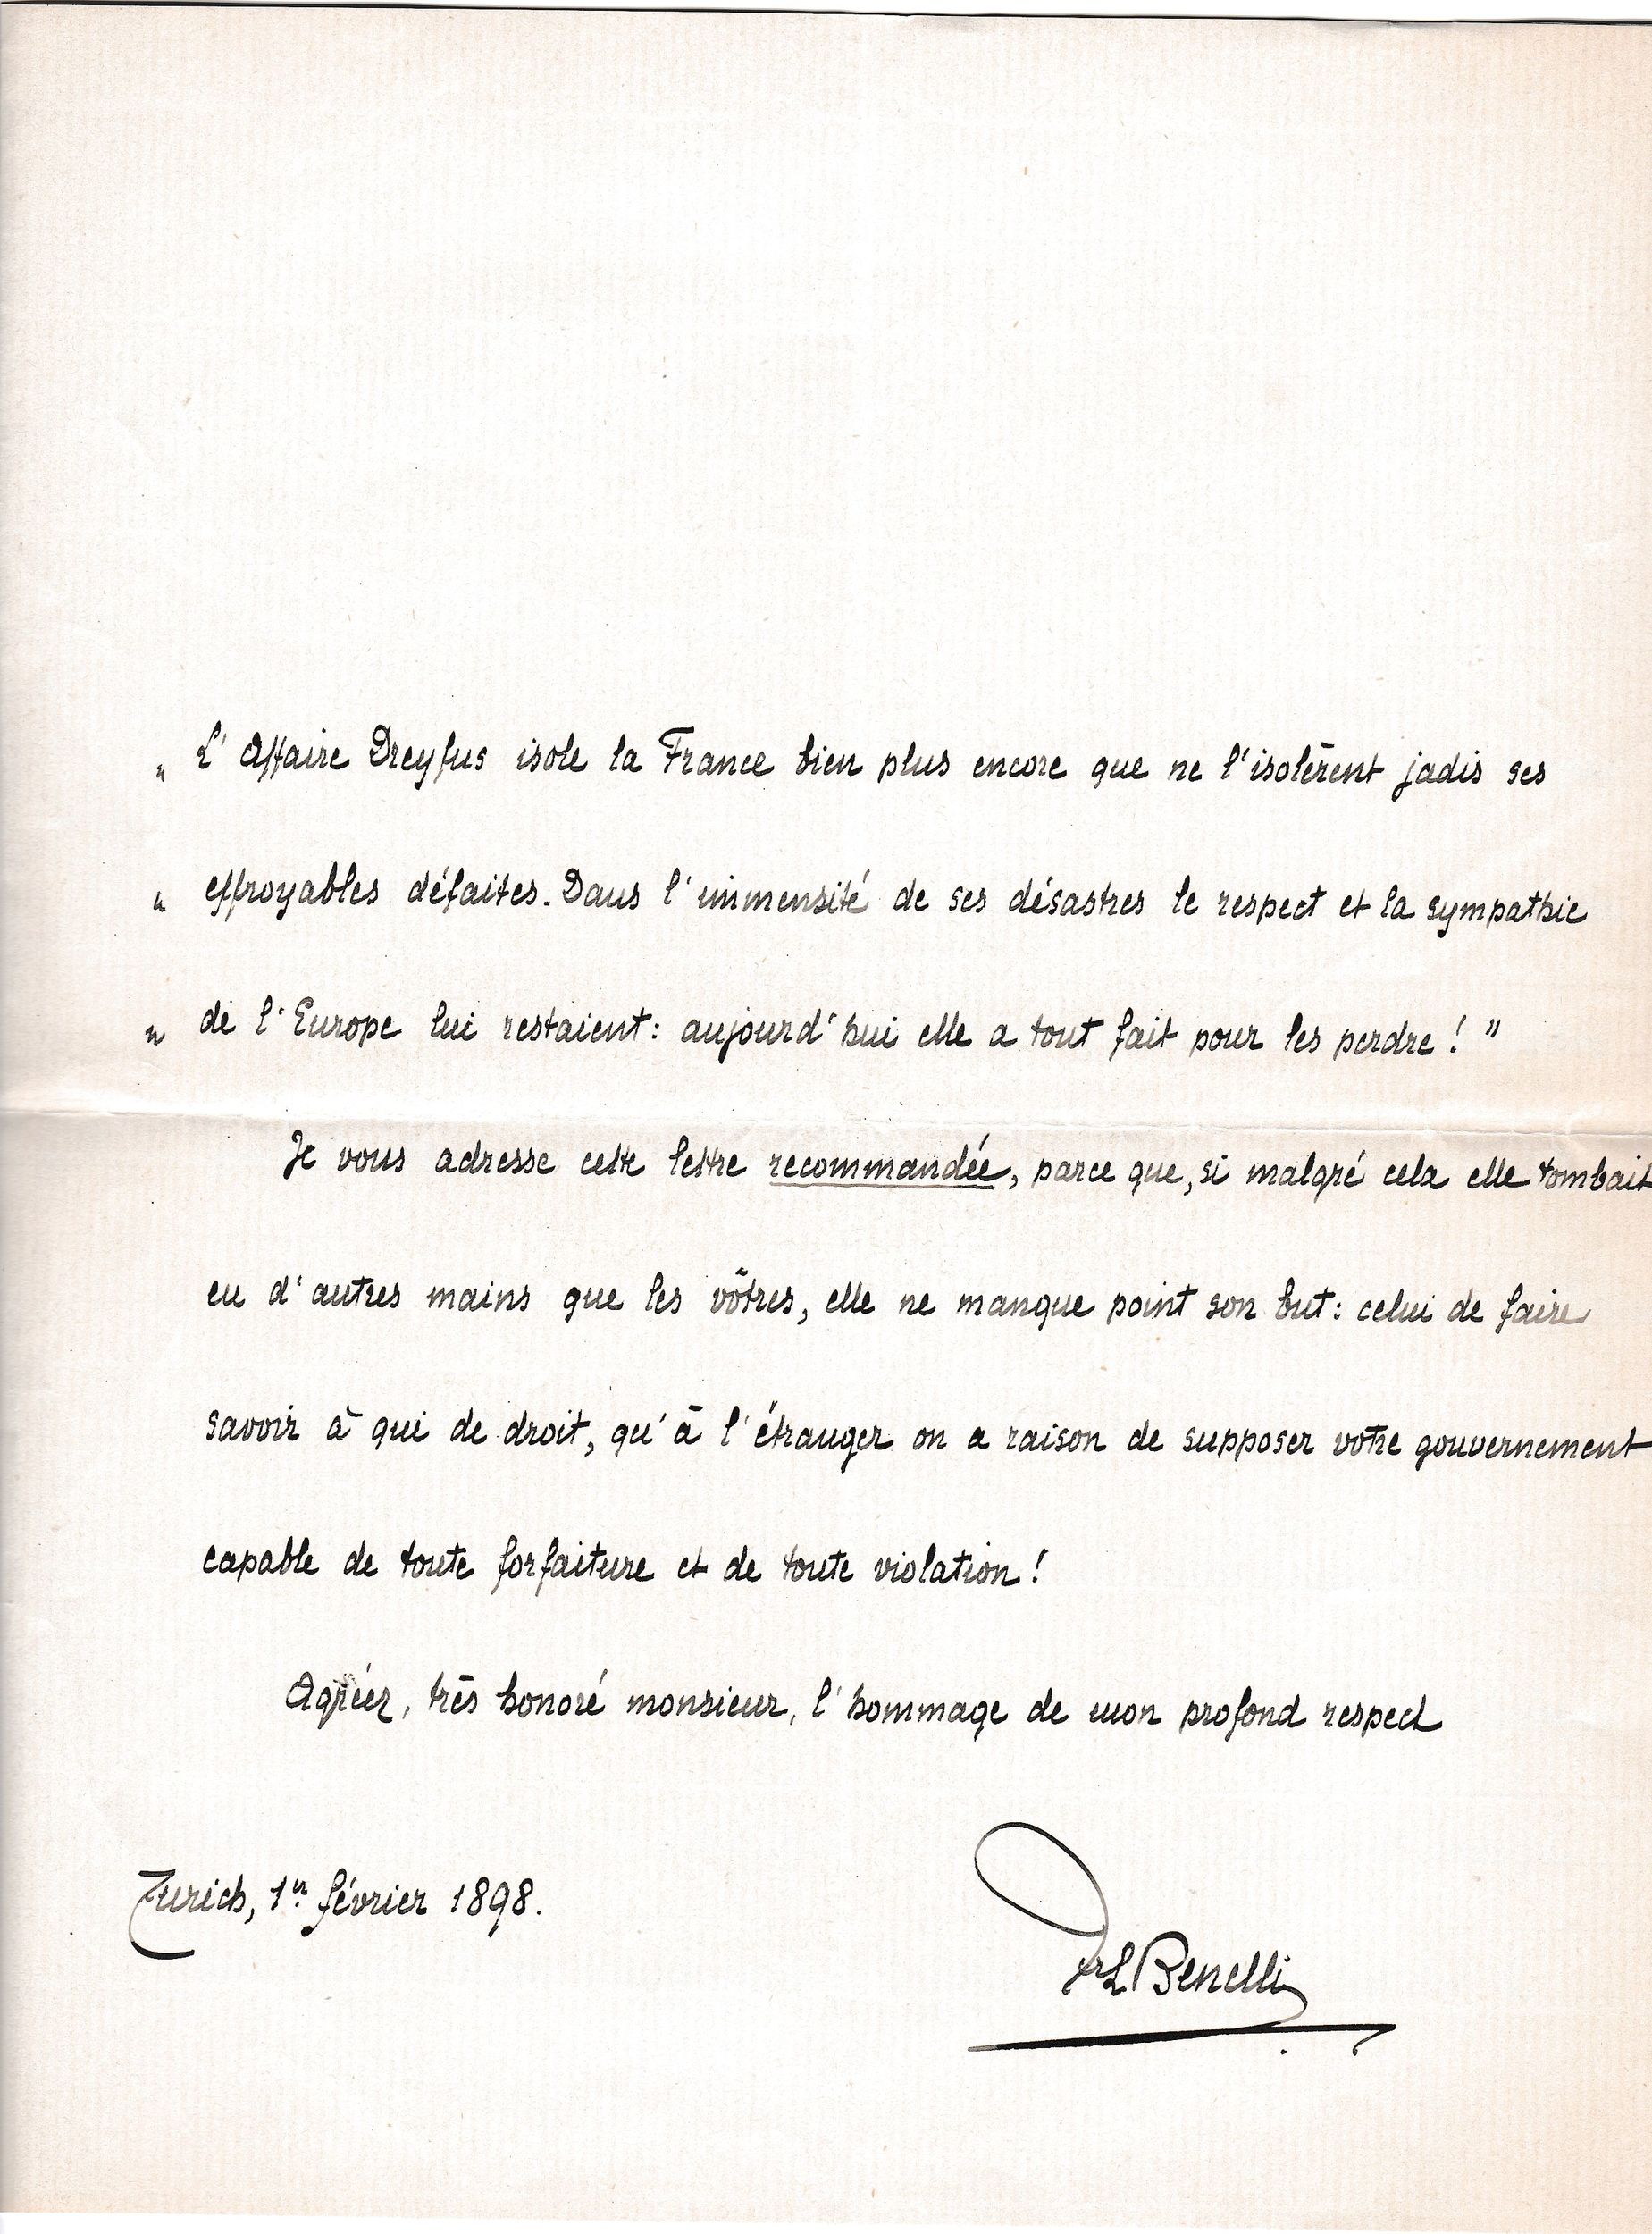 „ L'Affaire Dreyfus isole la France bien plus encore que ne l'isolèrent jadis ses
„ effroyables défaites. Dans l'immensité de ses désastres le respect et la sympathie
„ de l'Europe lui restaient: aujourd'hui elle a tout fait pour les perdre! "
Je vous adresse cette lettre recommandée, parce que, si malgré cela elle tombait
en d'autres mains que les vôtres, elle ne manque point son but: celui de faire
savoir à qui de droit, qu'à l'étranger on a raison de supposer votre gouvernement
capable de toute forfaiture et de toute violation!
Agréez, très honoré monsieur, l'hommage de mon profond respect
Zurich, 1er février 1898.
L Benelli